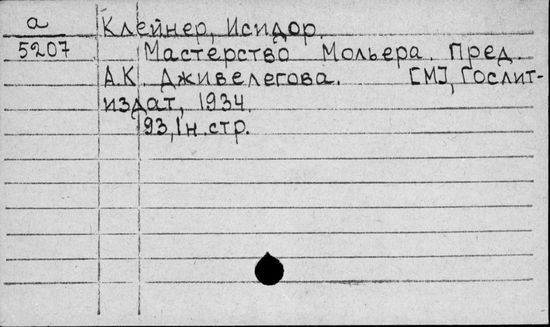 а
5207
Клейнер, Исидор.
Мастерство Мольера. Пред.
А.К. Дживелегова. [М], Гослит-
издат, 1934.
93,1 н. стр.